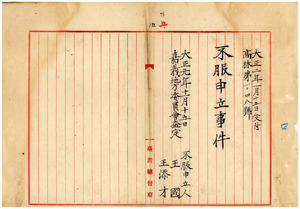 大正二年二月二二日交付
高林第一〇四八號
不服申立事件
大正元年十一月十五日
嘉義地方委員會查定
不服申立人
王國
王添才
臺灣總督府